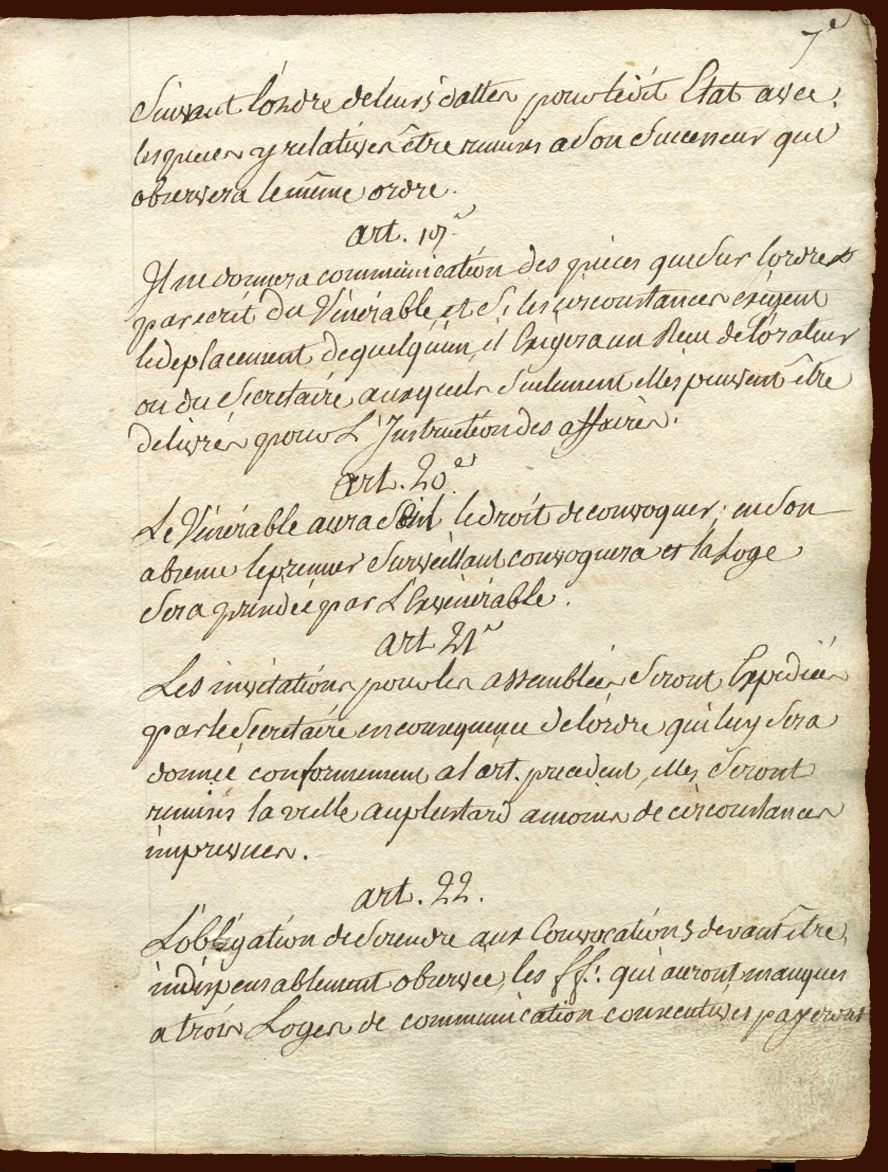 7e
Suivant l'ordre de leurs dattes pour ledit Etat avec
les pieces y relatives être remises a Son Successeur qui
observera le même ordre.
art. 19e
Il ne donnera communication des pièces que Sur l'ordre
par ecrit du Vénérable et Si les circonstances exigent
le deplacement de quelqu'une, il Exigera un Recu de l'orateur
ou du Secretaire auxquels Seulement elles peuvent être
delivrées pour L'Instruction des affaires.
art. 20e
Le Vénérable aura Seul le droit de convoquer; en Son
absence le premier Surveillant convoquera et la Loge
Sera presidée par L'Exvénérable.
art 21e
Les invitations pour les assemblées Seront Expediées
par le Secretaire en consequence de l'ordre qui luy Sera
donnée conformement a l'art. precedent, elles Seront
remises la veille au plustard a moins de circonstances
imprevues.
art. 22.
L'obligation de Se rendre aux Convocations devant être
indispensablement observée, les ff: qui auront manqués
a trois Loges de communication consecutives payeront